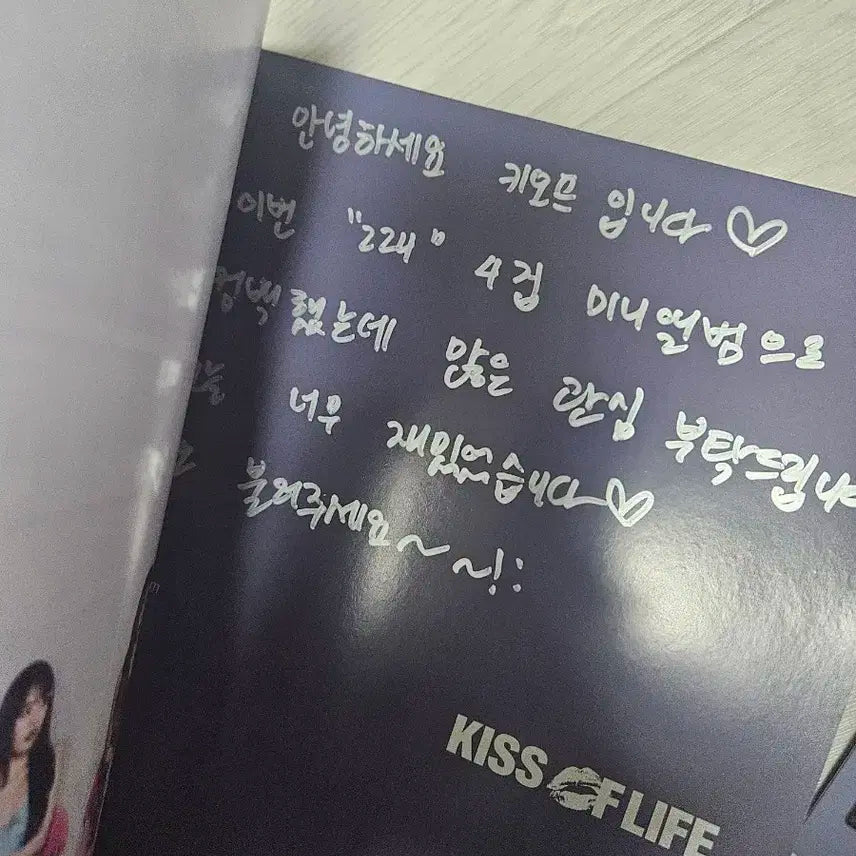 안녕하세요 키오프 입니다♡
이번 "224" 4집 미니앨범으로
컴백했는데 많은 관심 부탁드립니다
너무 재밌었습니다♡
불러주세요~~!:
KISS OF LIFE